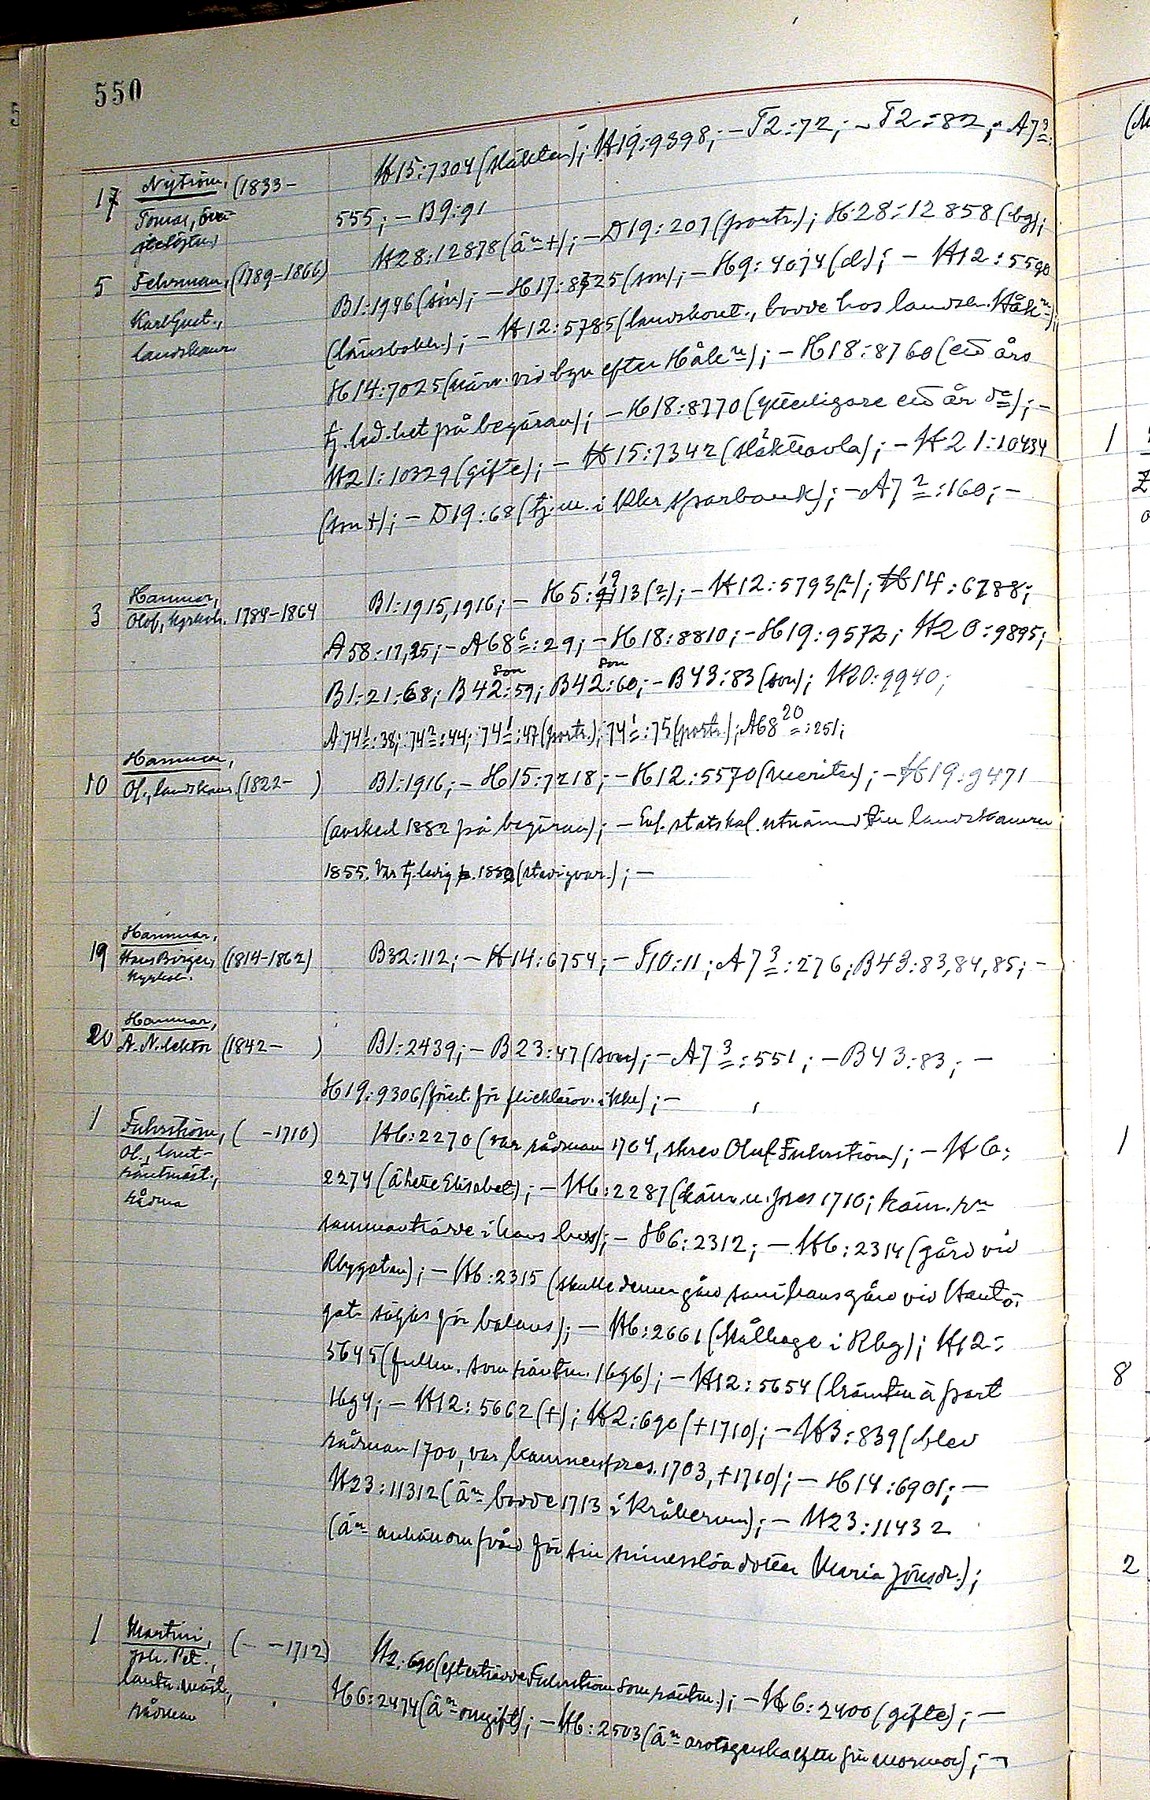 550
17 Nyström, (1833- H15:7304 (släkten); H19:9398; - T2:72; - T2:82; - A7 3:
Tomas, över- 555; - B9:91
5 Fehrman, (1789-1866) H28:12878 (än +); - D19:207 (portr.); H28:12858 (bg);
Karl Gust., B1:1986 (son); - H17:8725 (son); - H9:4074 (d); - H12:5590
landskam. (länsbokh.); - H12:5785 (landskont., bodde hos landsh. Håkn);
H14:7025 (närv. vid byn efter Håkn); - H18:8760 (ett års
tj.led.het på begäran); - H18:8770 (ytterligare ett år do); -
H21:10329 (gifte); - H15:7342 (släkttavla); - H21:10434
(son +); - D19:68 (tj.m. i Kkr sparbank); - A7 2:160; -
3 Hammar, B1:1915, 1916; - H5:1913 (2); - H12:5793 (2); H14:6788;
Olof, kyrkoh. 1784-1864 A58:17, 25; - A68 c:29; - H18:8810; - H19:9572; H20:9895;
son son
B1:21:68; B42:59; B42:60; - B43:83 (son); H20:9940;
A 74 1:38; 74 2:44; 74 1:47 (portr.); 74 1:75 (portr.); A68 20:251;
10 Hammar,
Ol., landskam. (1822- ) B1:1916; - H15:7218; - H12:5570 (meriter); - H19:9471
(avsked 1882 på begäran); - Enl. statskal. utnämnd till landskamrer
1855. Var tj.ledig 1880 (stadigvar.); -
19 Hammar,
Hans Birger, (1814-1862) B32:112; - H14:6754; - F10:11; A7 3:276; B43:83, 84, 85; -
kyrkoh.
20 Hammar,
A. N. lektor (1842- ) B1:2439; - B23:47 (son); - A7 3:551; - B43:83; -
H19:9306 (förest. för flicklärov. i Kkr); -
1 Fuhrström, ( -1710) H6:2270 (var rådman 1704, skrev Oluf Fuhrström); - H6:
Ol., lant- 2274 (än hette Elisabet); - H6:2287 (käm.n. pres 1710; käm.rn
räntmäst., sammanträdde i hans hus); - H6:2312; - H6:2314 (gård vid
rådma Rbygatan); - H6:2315 (skulle denna gård samt hans gård vid
gat. säljas för balans); - H6:2661 (kålhage i Rbg); H12:
5645 (fullm. som räntm. 1696); - H12:5654 (räntm. à part
1694; - H12:5662 (+); H2:690 (+1710); - H3:839 (blev
rådman 1700, var kamnerspres. 1703, +1710); - H14:6901; -
H23:11312 (än bodde 1713 i Kråkerum); - H23:11432
(än anhöll om vård för sin sinnesslöa dotter Maria Jönsdr.);
1 Martini, ( - -1712) H2:690 (efterträdde Fuhrström som räntm.); - H6:2400 (gifte); -
Joh. Pet., H6:2474 (än omgift); - H6:2503 (än arvtagerska efter sin mormor); -
lantr.mäst.,
rådman
1
1
8
2